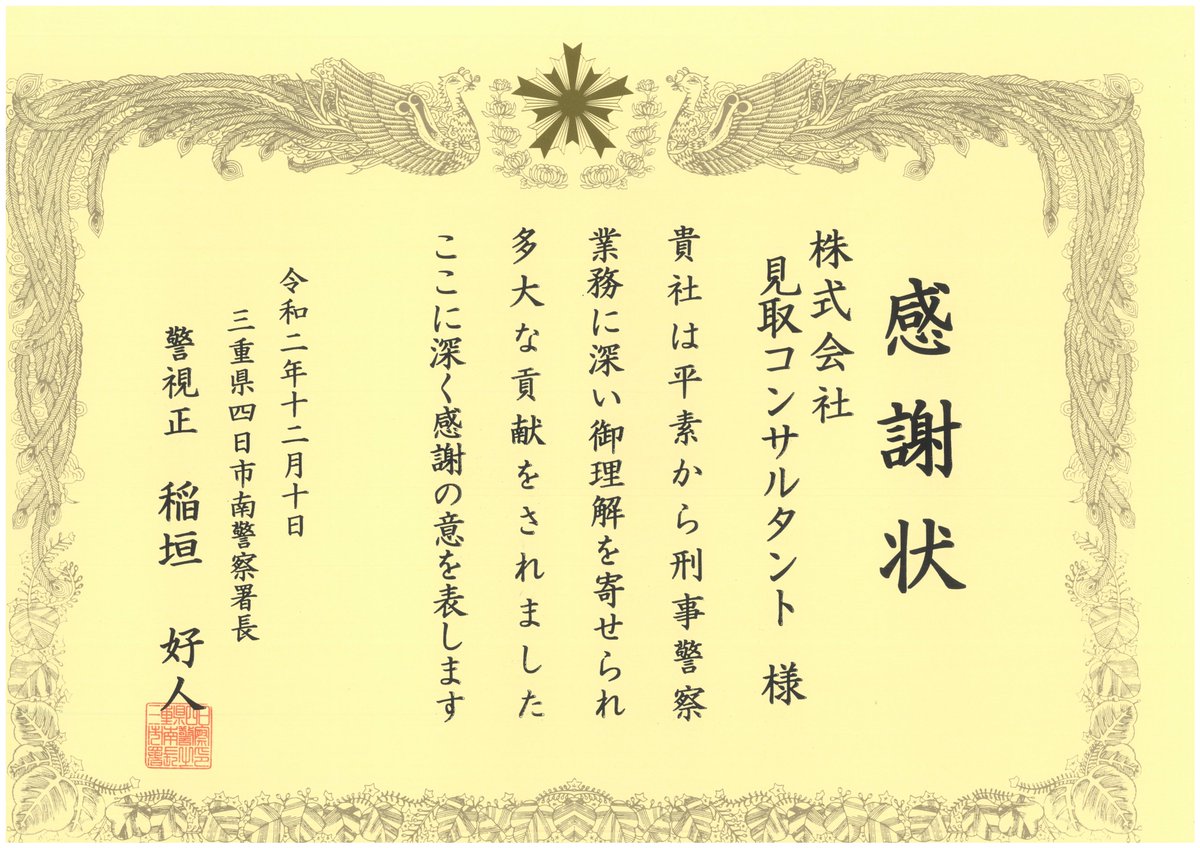 感謝状
株式会社
見取コンサルタント 様
貴社は平素から刑事警察
業務に深い御理解を寄せられ
多大な貢献をされました
ここに深く感謝の意を表します
令和二年十二月十日
三重県四日市南警察署長
警視正 稲垣 好人